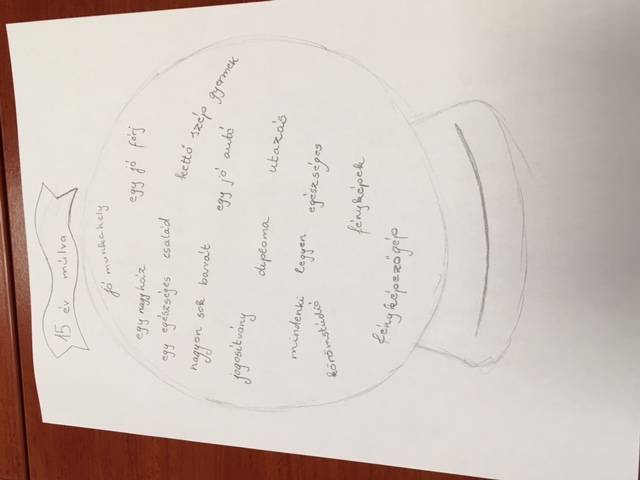 15 év múlva
jó munkahely
egy nagy ház egy jó férj
egy egészséges család kettő szép gyermek
nagyon sok barát egy jó autó
jogosítvány diploma utazás
mindenki legyen egészséges
körömstúdió
fényképezőgép fényképek